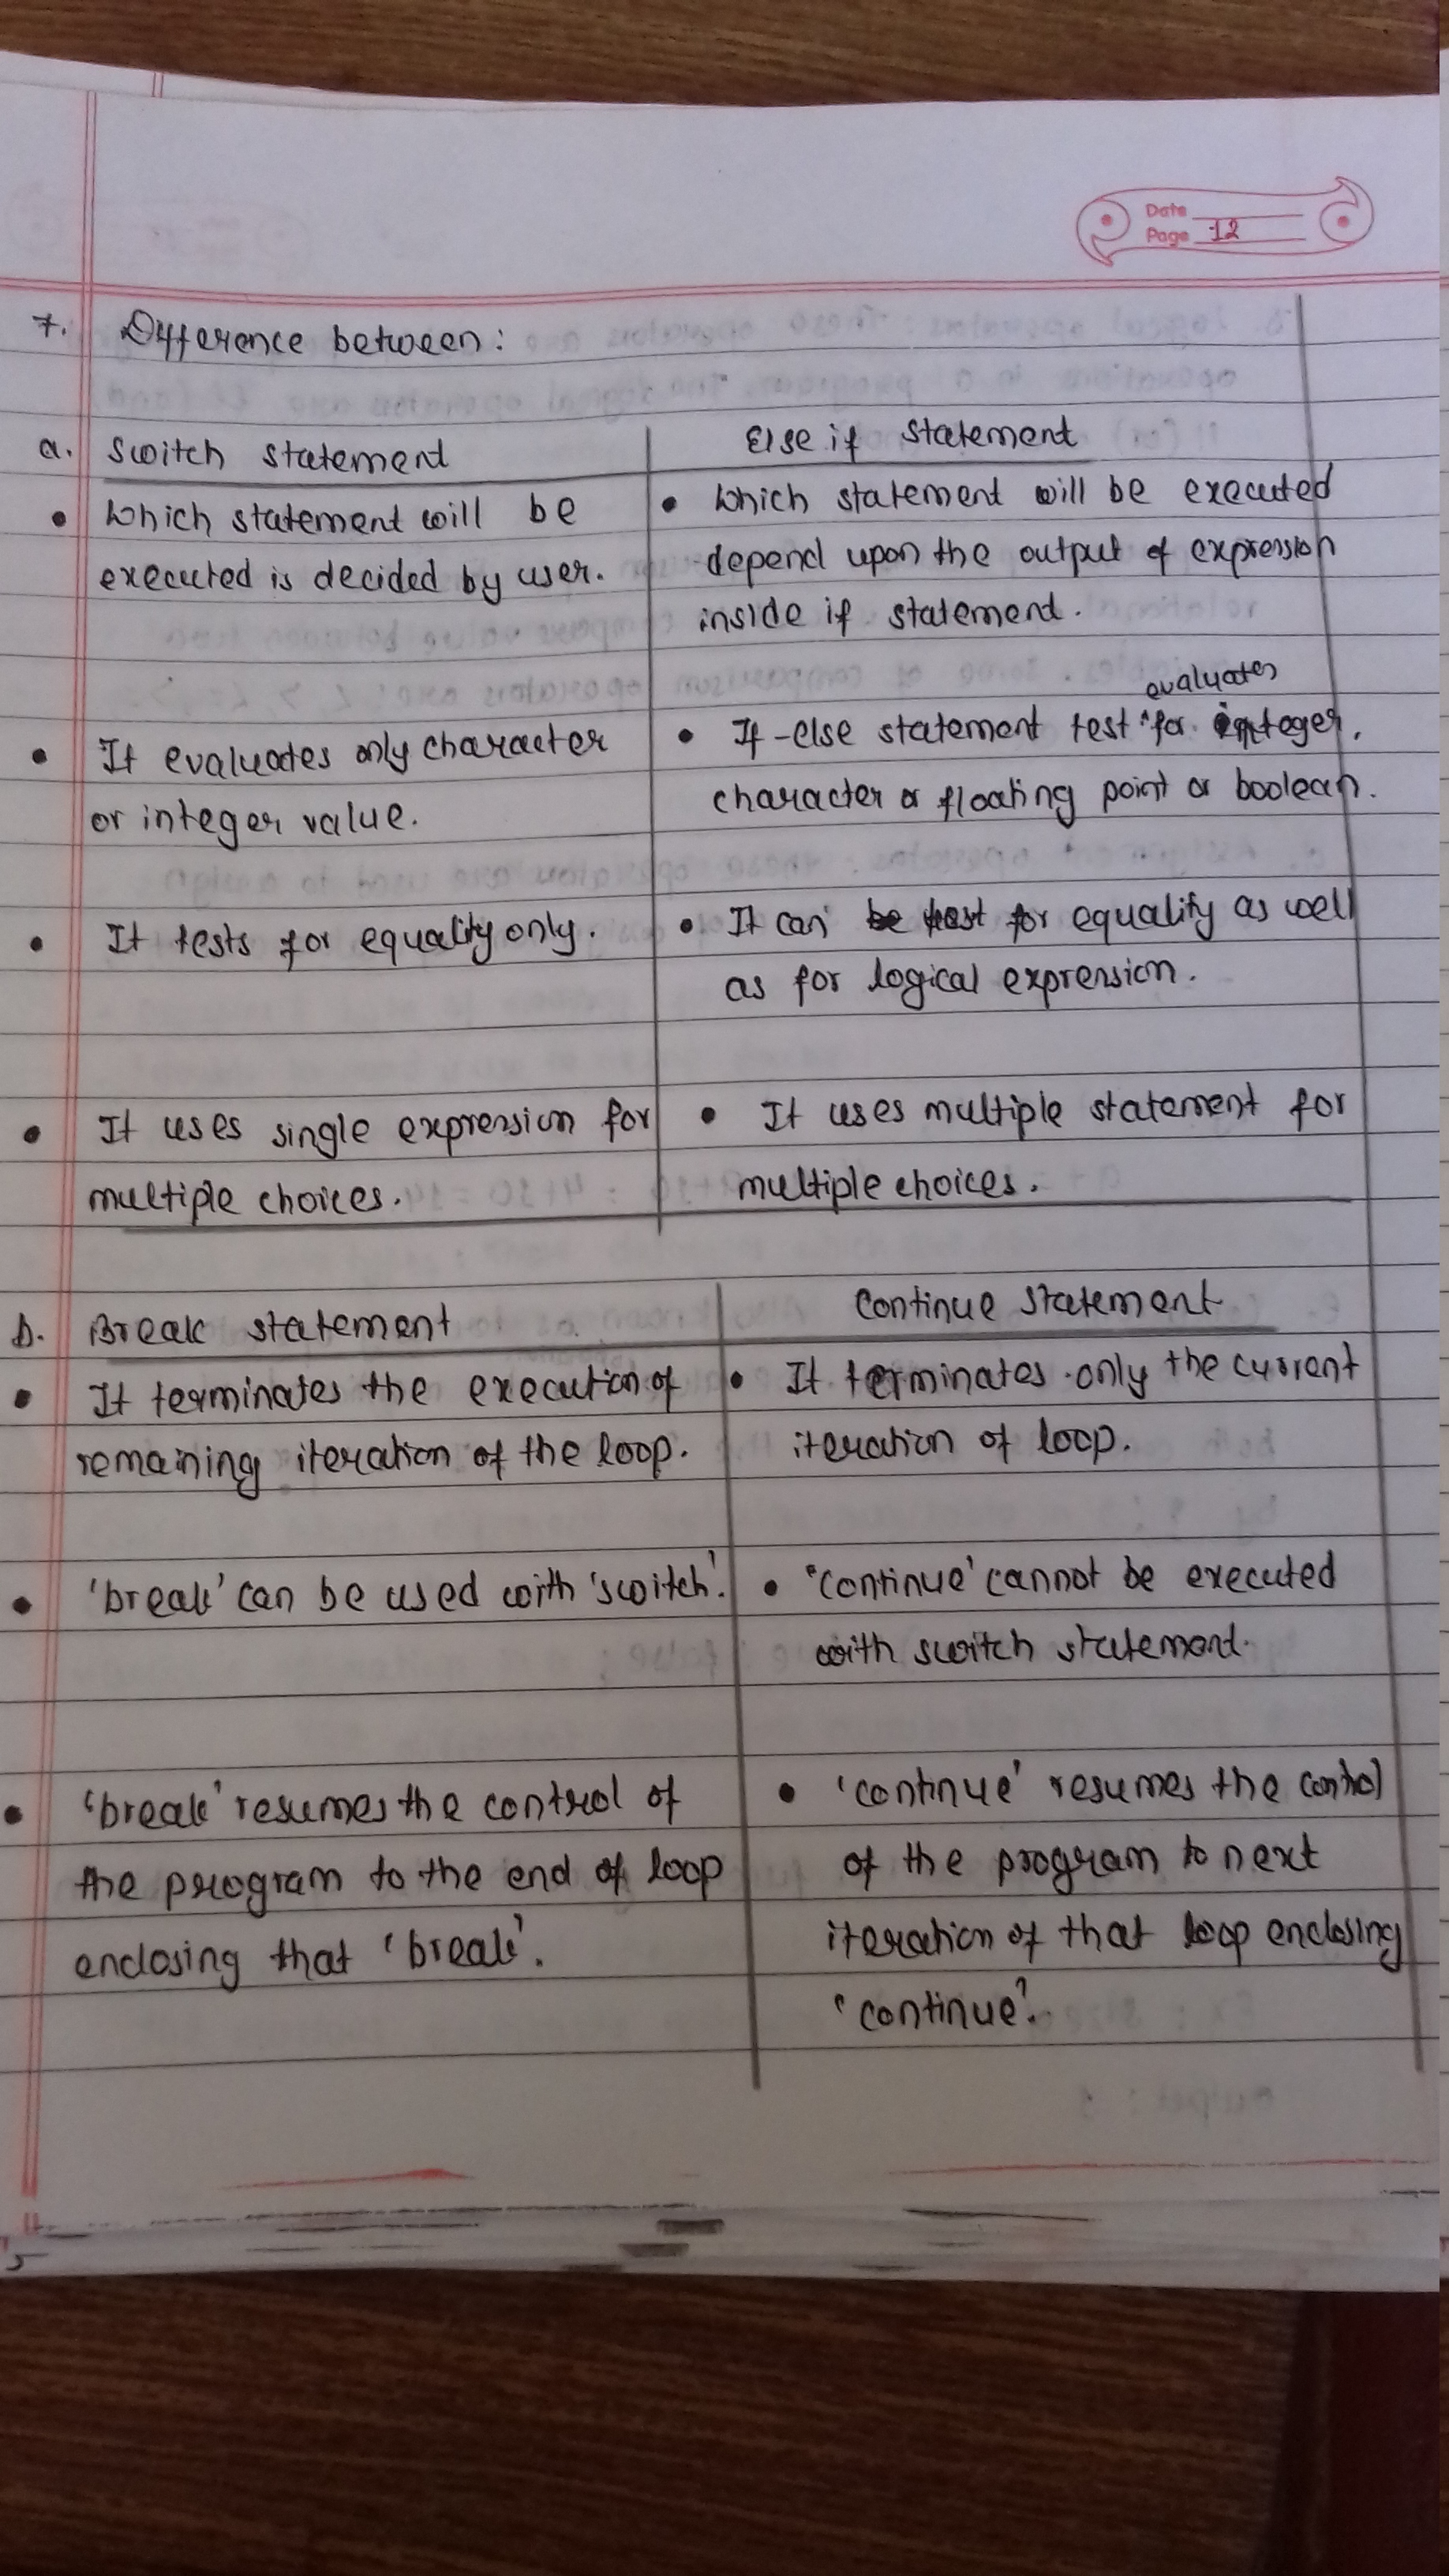 Date
Page 12
7. Difference between:
a. Switch statement
Else if statement
• Which statement will be
executed is decided by user.
• Which statement will be executed
depend upon the output of expression
inside if statement.
• It evaluates only character
or integer value.
evaluates
• If-else statement test for integer,
character or floating point or boolean.
• It tests for equality only.
• It can be test for equality as well
as for logical expression.
• It uses single expression for
multiple choices.
• It uses multiple statement for
multiple choices.
b. Break statement
Continue statement
• It terminates the execution of
remaining iteration of the loop.
• It terminates only the current
iteration of loop.
• 'break' can be used with 'switch'.
• 'continue' cannot be executed
with switch statement.
• 'break' resumes the control of
the program to the end of loop
enclosing that 'break'.
• 'continue' resumes the control
of the program to next
iteration of that loop enclosing
'continue'.